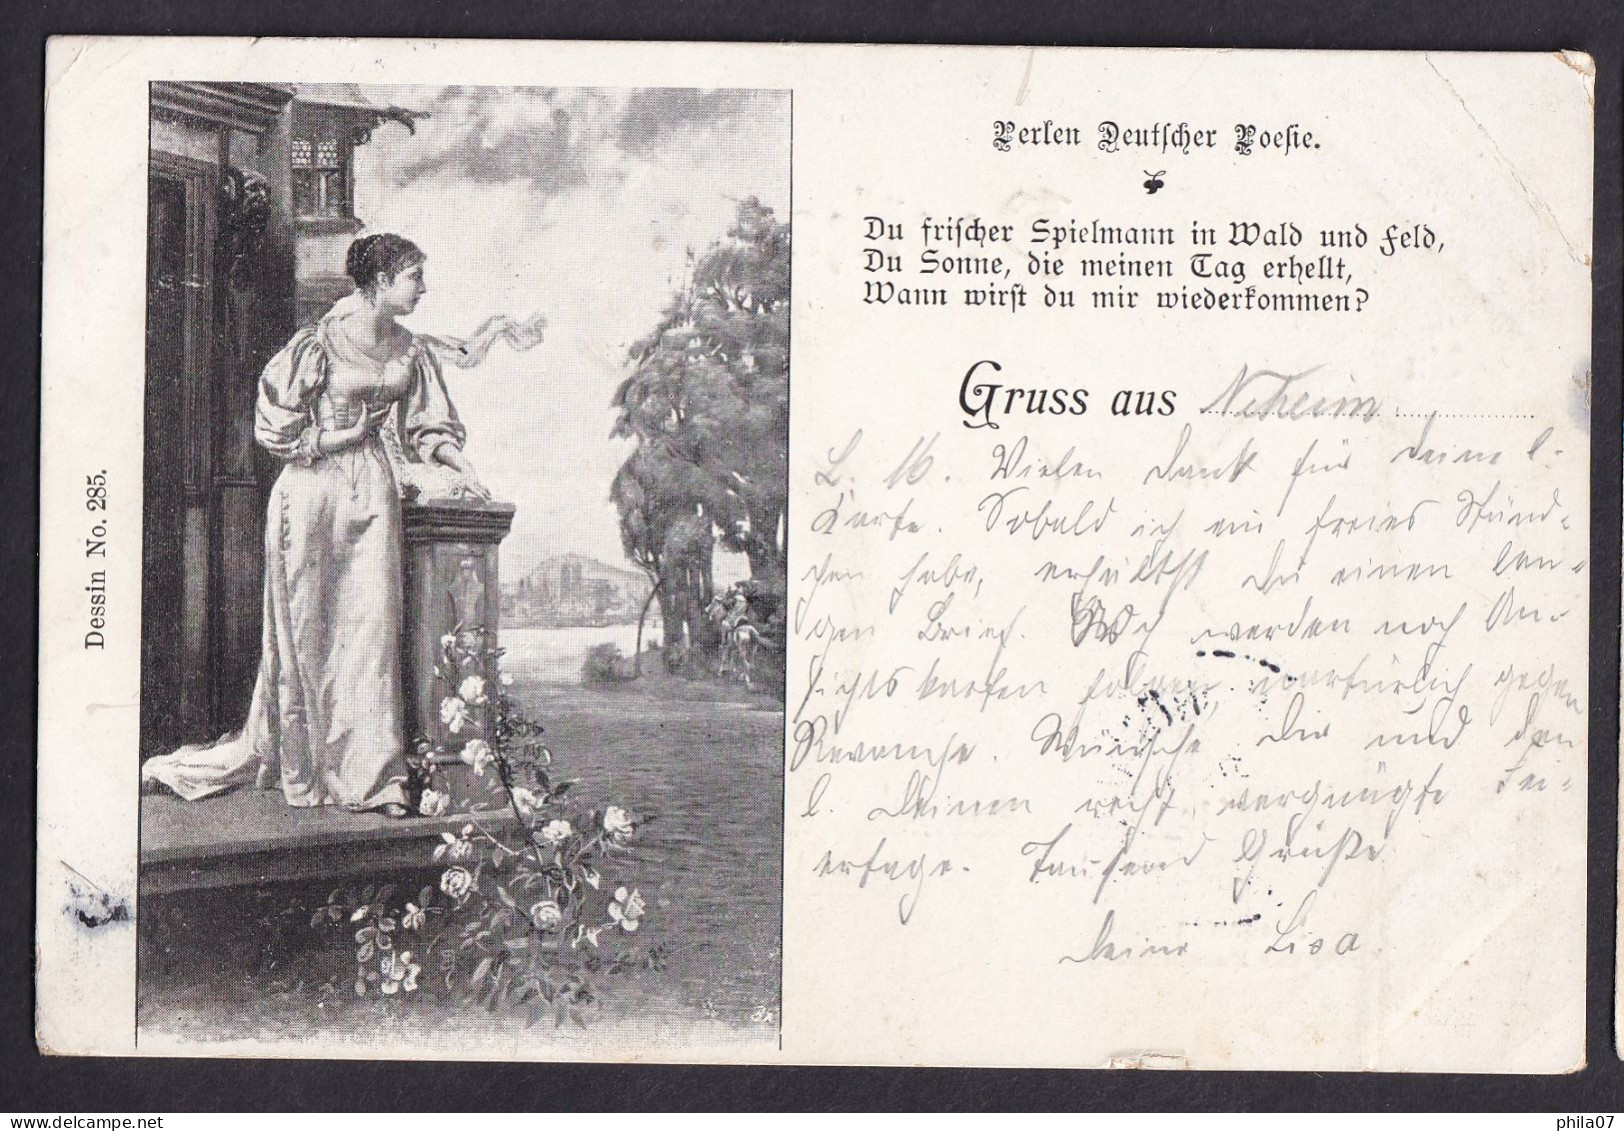 Dessin No. 285.
Perlen Deutscher Poesie.
Du frischer Spielmann in Wald und Feld,
Du Sonne, die meinen Tag erhellt,
Wann wirst du mir wiederkommen?
Gruss aus Neheim
L. M. Vielen Dank für Deine l.
Karte. Sobald ich ein freies Stünd-
chen habe, erhältst Du einen lan-
gen Brief. werden noch An-
sichtskarten folgen, natürlich gegen
Revanche. Wünsche Dir und den
l. Deinen recht vergnügte Fei-
ertage. Tausend Grüße
Deine Lisa.
phila07